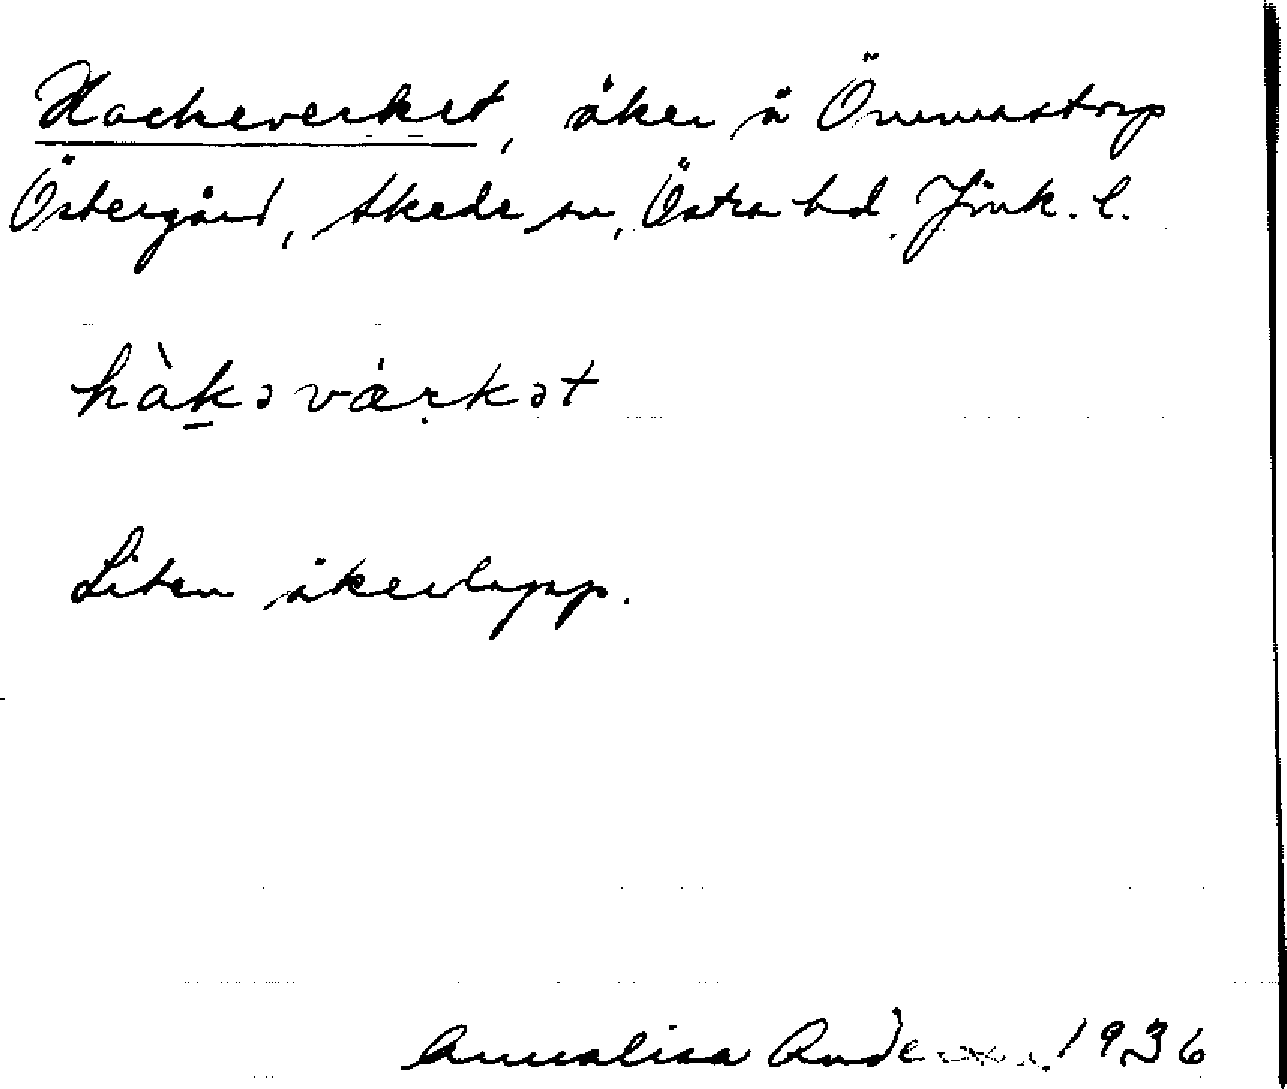 Hackeverket, åker å Ömmestorp
Östergård, Skede sn, Östra hd. Jönk. l.
hàkəvärkət
Liten åkerlapp.
Annalisa 1936